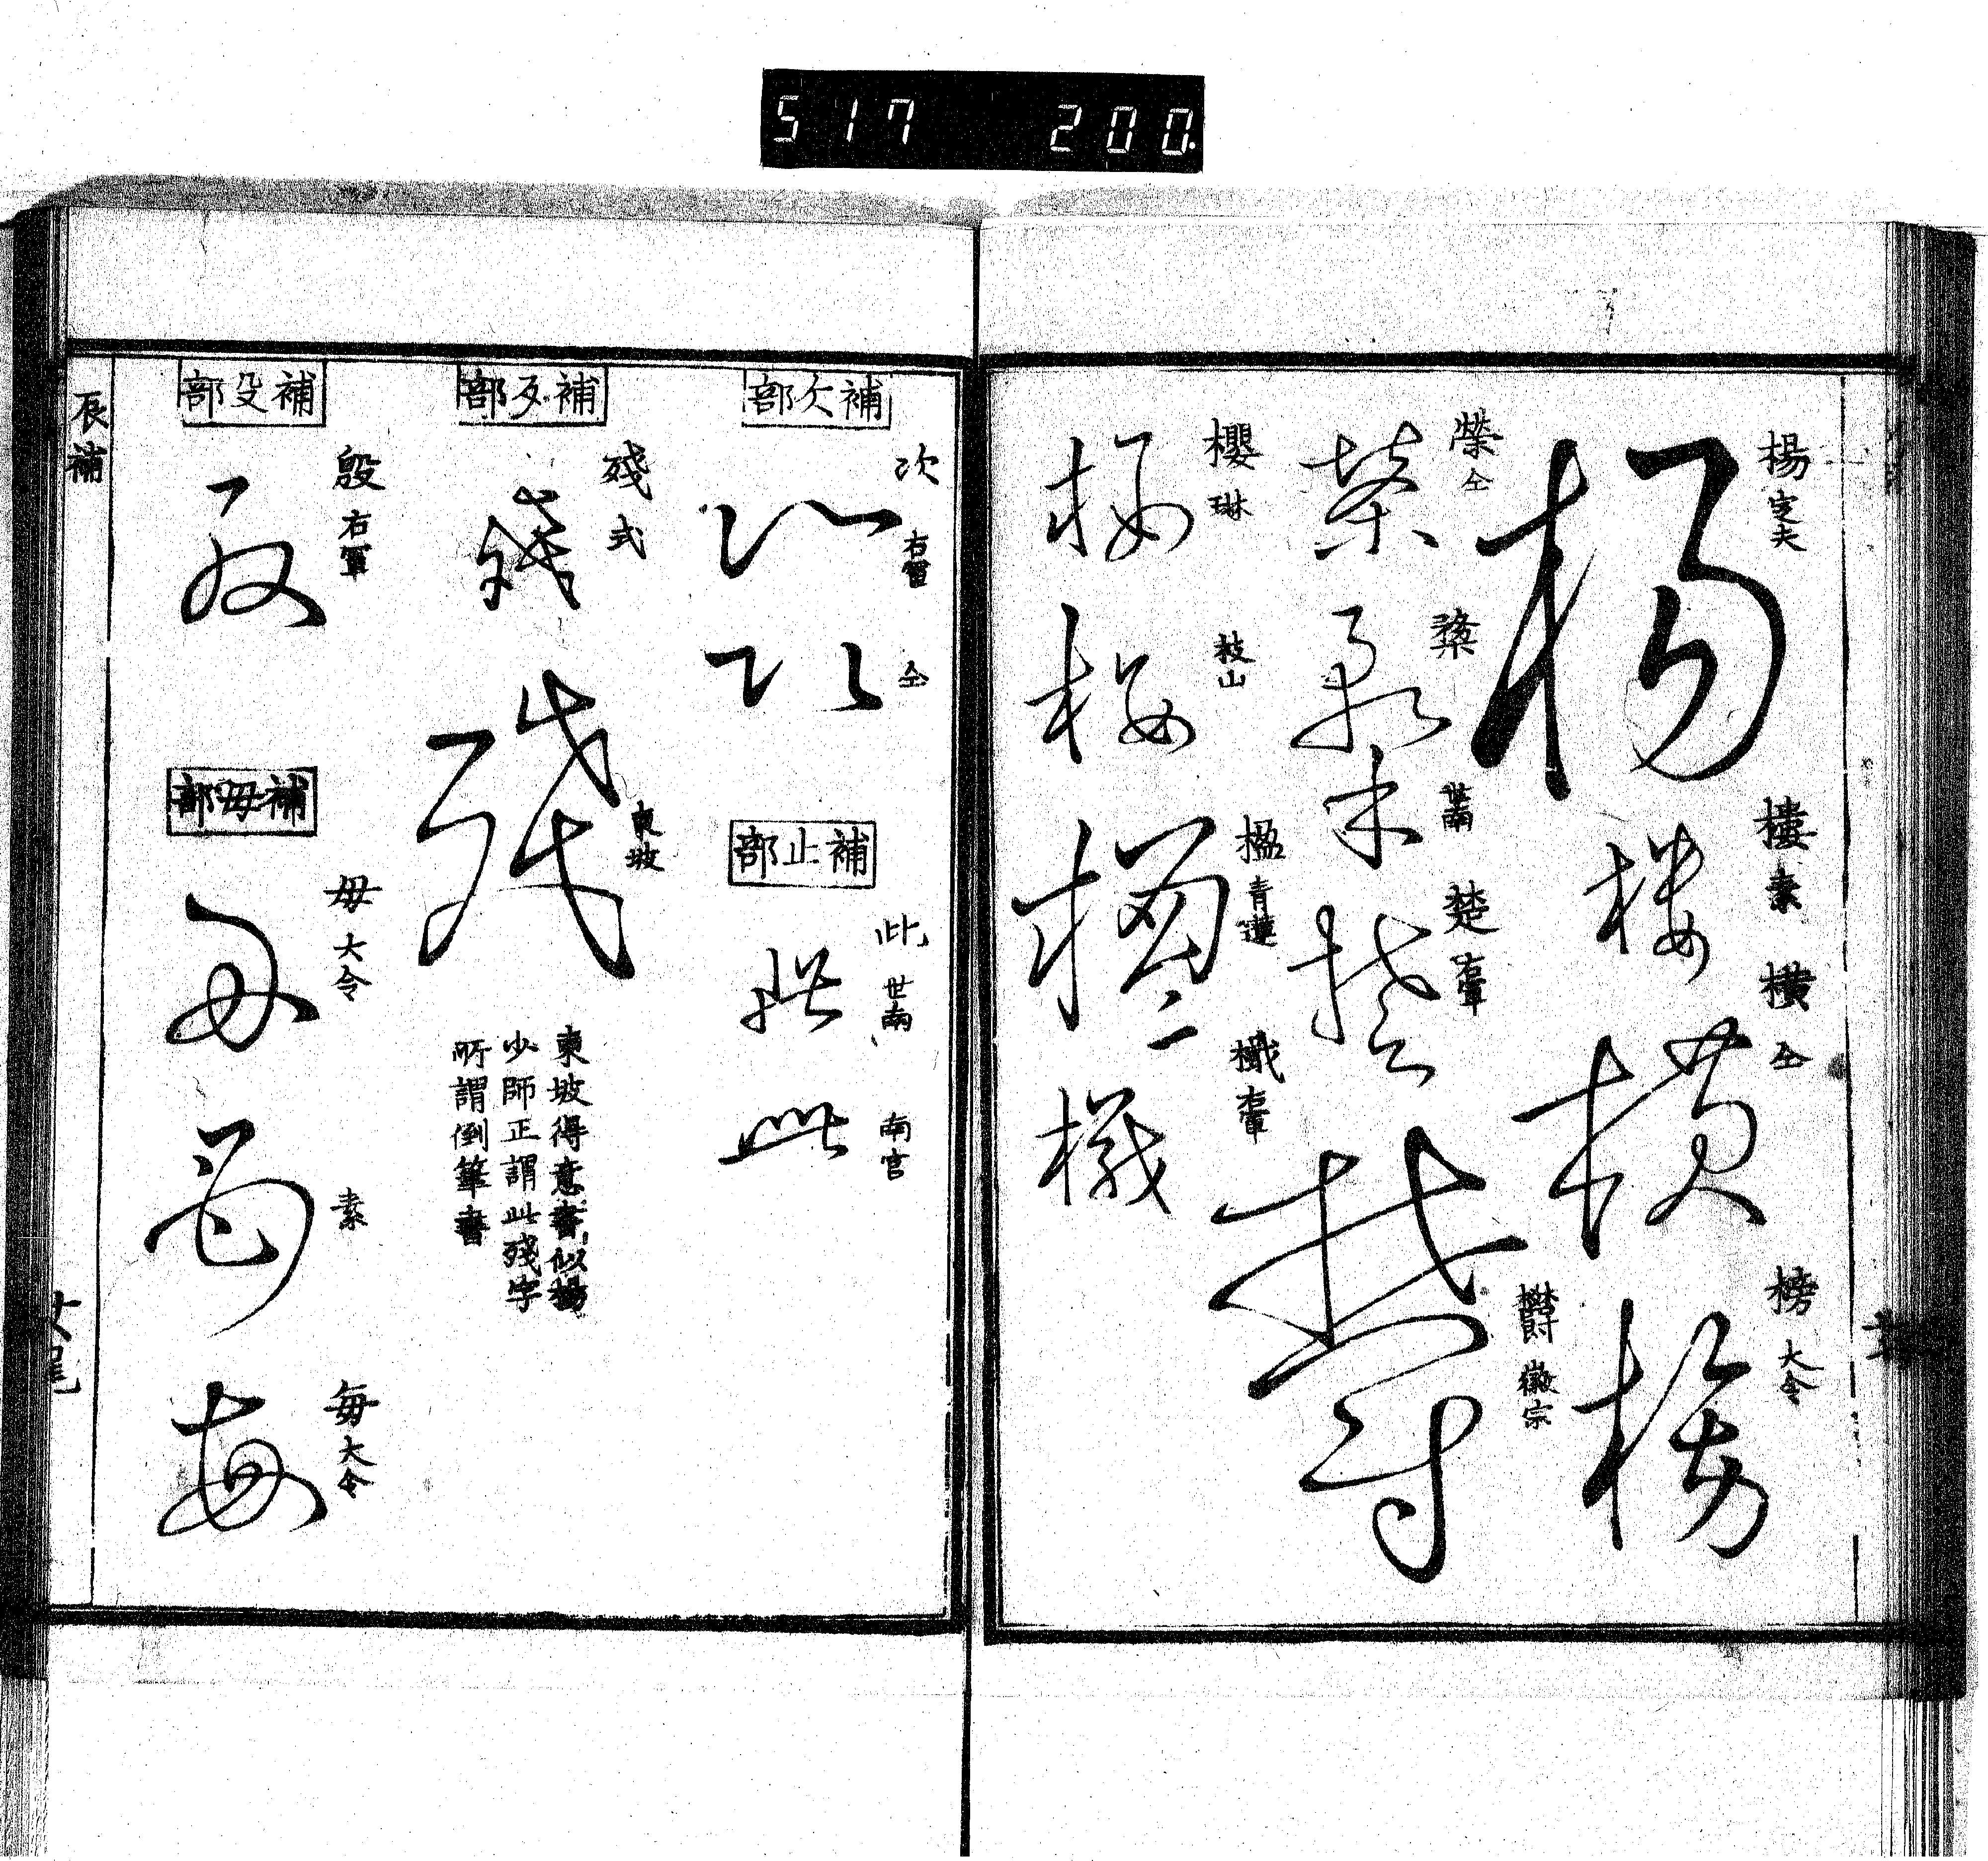 517 200
楊 定夫
樓 素
橫 仝
榜 大令
榮 仝
櫱
世南
楚 右軍
欝 徽宗
櫻 琳
枝山
榲 青蓮
樴 右軍
補欠部
次 右軍
仝
補止部
此 世南
南宮
補歹部
殘 式
東坡
東坡得意書似楊
少師正謂此殘字
所謂倒筆書
補殳部
殷 右軍
補毋部
毋 大令
素
每 大令
辰補